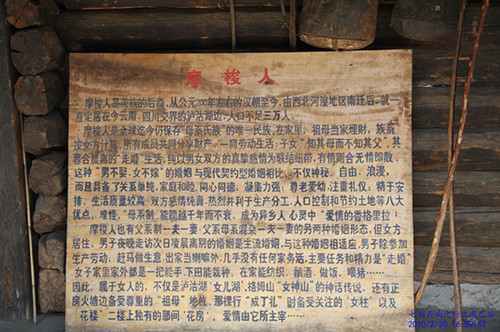 摩梭人
摩梭人是 的后裔，从公元 年左右的汉朝至今，由西北河湟地区南迁后，就一
直定居在今云南、四川交界的泸沽湖边，人口不足三万人。
摩梭人是全球迄今仍保存"母系氏族"的唯一民族，在家里，祖母当家理财，族裔
按女方计算，所有成员共同分享财产，一同劳动生活，子女"知其母而不知其父"，其
"走婚"生活，纯以男女双方的真挚感情为联结纽带，有情则合无情即散，
这种"男不娶、女不嫁"的婚姻与现代契约型婚姻相比，不仅神秘、自由、浪漫，
而且具备了关系单纯，家庭和睦，同心同德，凝集力强，尊老爱幼，注重礼仪，精于安
排，生活质量较高，双方感情纯真，热烈并利于生产分工，人口控制和节约土地等八大
优点，难怪，"母系制"能跨越千年而不衰，成为异乡人心灵中"爱情的香格里拉"！
摩梭人也有父系制一夫一妻、父系母系混杂一夫一妻的另两种婚姻形式，但女方
居住，男子夜晚走访次日凌晨离别的婚姻是主流婚姻，与这种婚姻相适应，男子除参加
生产劳动、赶马做生意、出家当喇嘛外，几乎没有任何家务活，主要任务和精力是"走婚"
女子家里家外都是一把能手，下田能栽种，在家能纺织、酿酒、做饭、喂猪……
因此，属于女人的，不仅是泸沽湖"女儿湖"、格姆山"女神山"的神话传说，还有正
房火塘边备受尊重的"祖母"地位，那裸行"成丁礼"时备受关注的"女柱"以及
花楼"二楼上独有的那间"花房"，爱情由它所主宰……